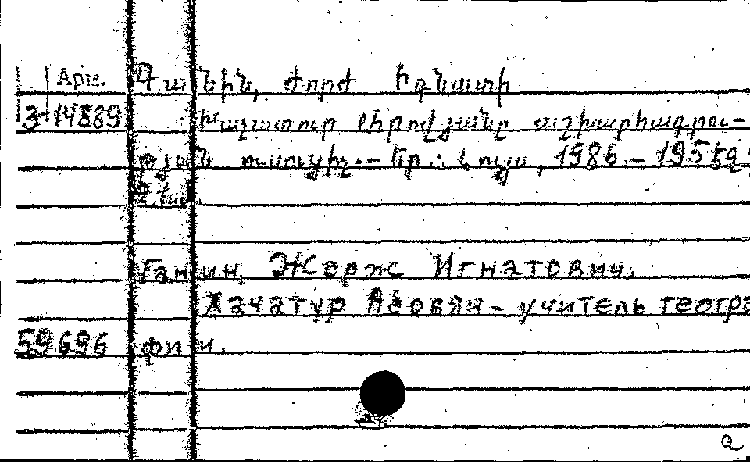 Арм. Գանին, Ժորժ Իգնատի
3-14889 Խաչատուր Աբովյանը աշխարհագրու-
թյան ուսուցիչ.– Եր.: Լույս, 1986.– 195 էջ
Ганин, Жорж Игнатович.
Хачатур Абовян – учитель геогра
59696 фии.
a